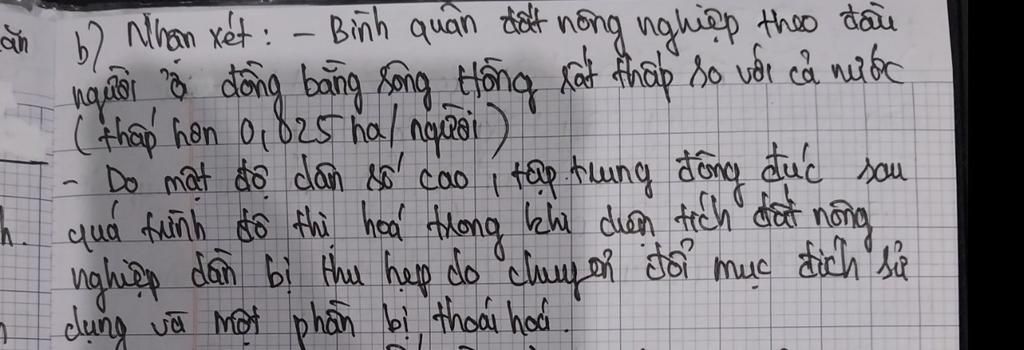 b) Nhận xét: - Bình quân đất nông nghiệp theo đầu
người ở đồng bằng sông Hồng rất thấp so với cả nước
(thấp hơn 0,825 ha/người)
- Do mật độ dân số cao, tập trung đông đúc sau
quá trình đô thị hoá trong khi diện tích đất nông
nghiệp dần bị thu hẹp do chuyển đổi mục đích sử
dụng và một phần bị thoái hoá.